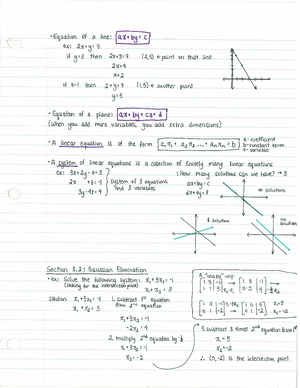 • Equation of a line: ax+by=c
ex: 2x+y=7
if y=3 then 2x+3=7 (2,3) ← point on that line
2x=4
x=2
if x=1 then 2+y=7 (1,5) ← another point
y=5
• Equation of a plane: ax+by+cz=d
(when you add more variables, you add extra dimensions)
• A linear equation is of the form a₁x₁ + a₂x₂ ... + aₙxₙ = b
a - coefficient
b - constant term
x - variable
• A system of linear equations is a collection of finitely many linear equations:
ex: 3x+2y-z=3
2x +z=-1
3y-4z=4
system of 3 equations and 3 variables
: How many solutions can we have? → 3
ax+by=c
dx+ey=f
∞ solutions
1 solution
no solution
Section 1.2: Gaussian Elimination
• ex: Solve the following system: x₁+3x₂=-1
(looking for the intersected point) x₁+x₂=3
Solution: x₁+3x₂=-1
x₁+x₂=3
1. subtract 1st equation from 2nd equation
x₁+3x₂=-1
-2x₂=4
2. multiply 2nd equation by
x₁+3x₂=-1
x₂=-2
A "neater" way:
x₁=5
x₂=-2
3. subtract 3 times 2nd equation from 1st
x₁=5
x₂=-2
∴ (5,-2) is the intersection point